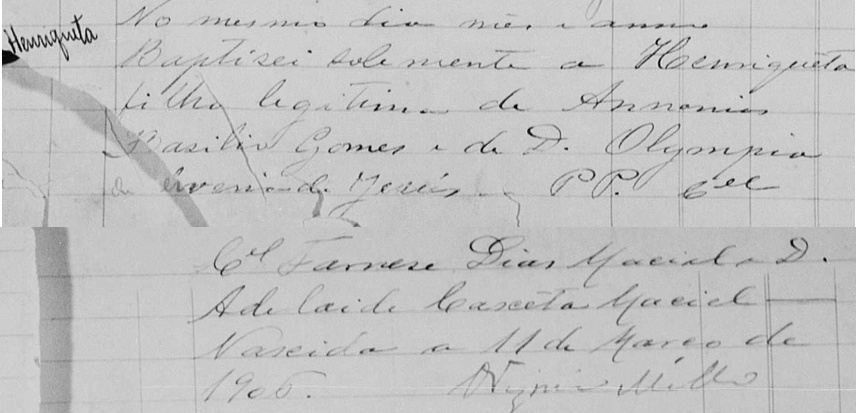 Henriqueta
No mesmo dia mês e anno
Baptisei solemnente a Henriqueta
filha legitima de Annanias
Basilio Gomes e de D. Olympia
de Jesús. PP. Cel
Cel Farnese Dias Maciel e D.
Adelaide Caxeta Maciel
Nascida a 11 de Março de
1906.